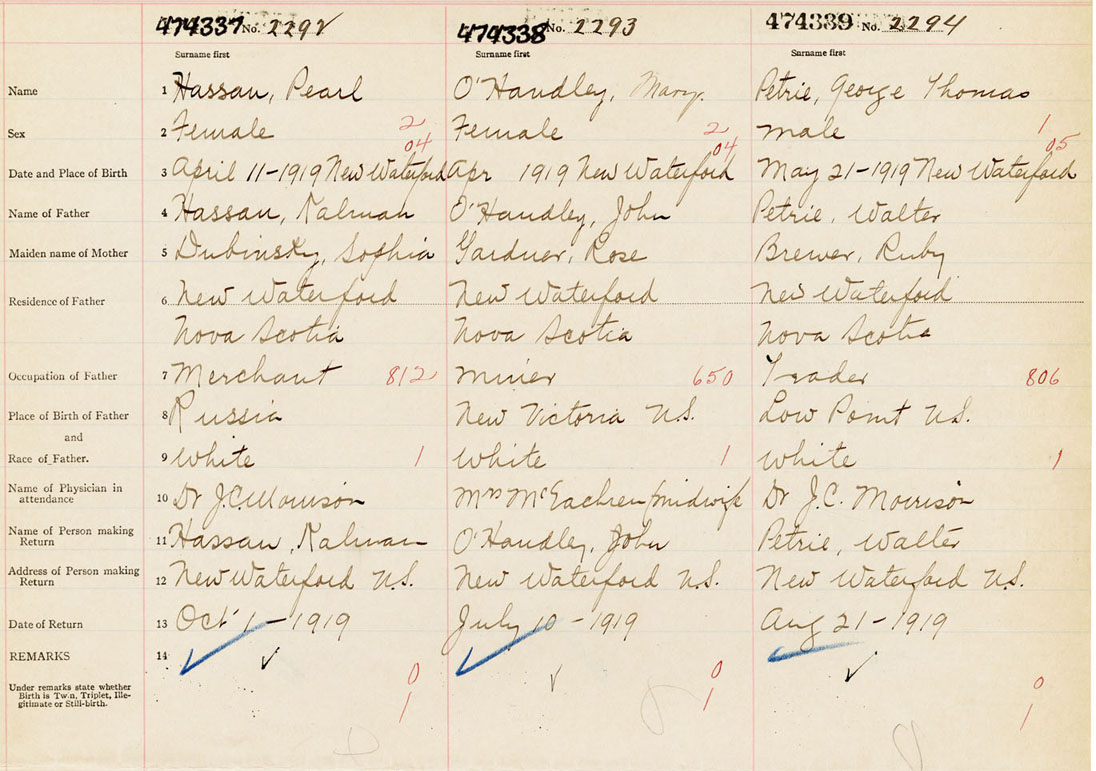 474337 No. 2292 474338 No. 2293 474339 No. 2294
Surname first Surname first Surname first
Name 1 Hassan, Pearl O'Handley, Mary. Petrie, George Thomas
Sex 2 Female 2 Female 2 male 1
04 04 05
Date and Place of Birth 3 April 11-1919 New Waterford Apr 1919 New Waterford May 21-1919 New Waterford
Name of Father 4 Hassan, Kalman O'Handley, John Petrie, Walter
Maiden name of Mother 5 Dubinsky, Sophia Gardner, Rose Brewer, Ruby
Residence of Father 6 New Waterford New Waterford New Waterford
Nova Scotia Nova Scotia Nova Scotia
Occupation of Father 7 Merchant 812 miner 650 Trader 806
Place of Birth of Father 8 Russia New Victoria N.S. Low Point N.S.
and
Race of Father. 9 White 1 White 1 White 1
Name of Physician in
attendance 10 Dr J.C. Morrison Mrs McEachren midwife Dr J.C. Morrison
Name of Person making
Return 11 Hassan, Kalman O'Handley, John Petrie, Walter
Address of Person making
Return 12 New Waterford N.S. New Waterford N.S. New Waterford N.S.
Date of Return 13 Oct 1-1919 July 10-1919 Aug 21-1919
REMARKS 14
Under remarks state whether
Birth is Twin, Triplet, Ille-
gitimate or Still-birth.
0 0 0
1 1 1